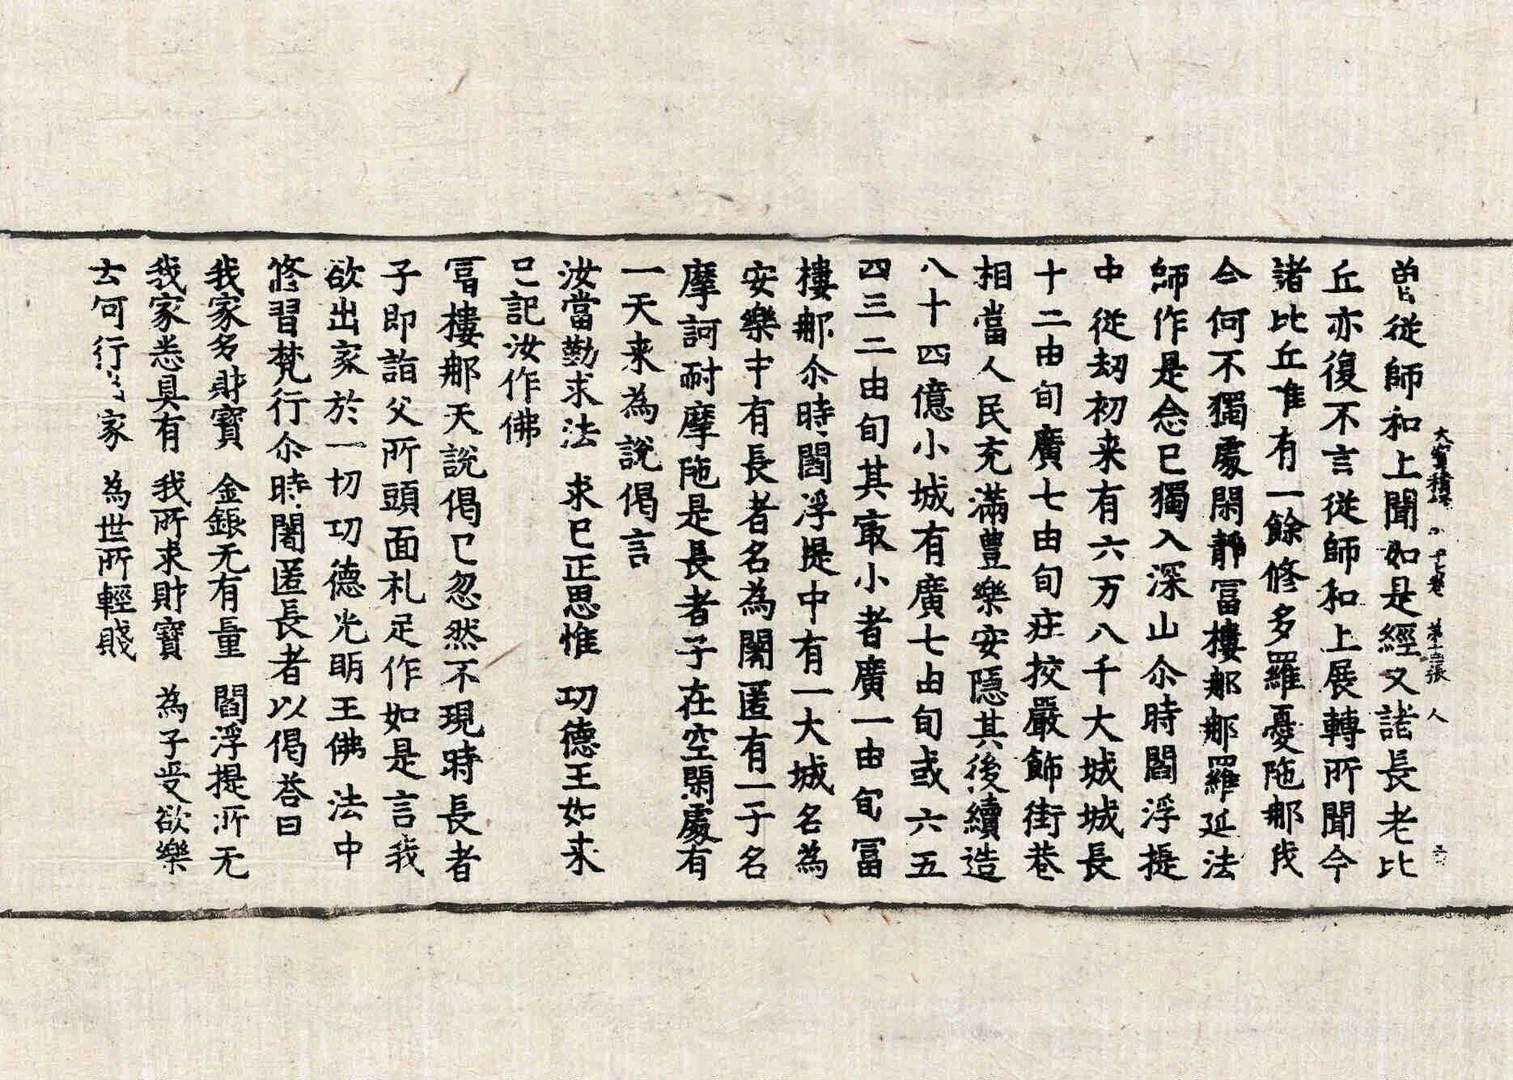 大寶積經 第十五張 人
曽従師和上聞如是經又諸長老比
丘亦復不言従師和上展轉所聞今
諸比丘唯有一餘修多羅憂陁那我
今何不獨處閑静冨樓那那羅延法
師作是念已獨入深山尒時閻浮提
中従劫初来有六万八千大城城長
十二由旬廣七由旬庄挍嚴飾街巷
相當人民充滿豊樂安隱其後續造
八十四億小城有廣七由旬或六五
四三二由旬其冣小者廣一由旬冨
樓那尒時閻浮提中有一大城名為
安樂中有長者名為闍匿有一子名
摩訶耐摩陁是長者子在空閑處有
一天来為說偈言
汝當勤求法 求已正思惟 功德王如来
已記汝作佛
冨樓那天說偈已忽然不現時長者
子即詣父所頭面礼足作如是言我
欲出家於一切功德光明王佛法中
修習梵行尒時闍匿長者以偈荅曰
我家多財寶 金銀无有量 閻浮提所无
我家悉具有 我所求財寶 為子受欲樂
云何行 家 為世所輕賤